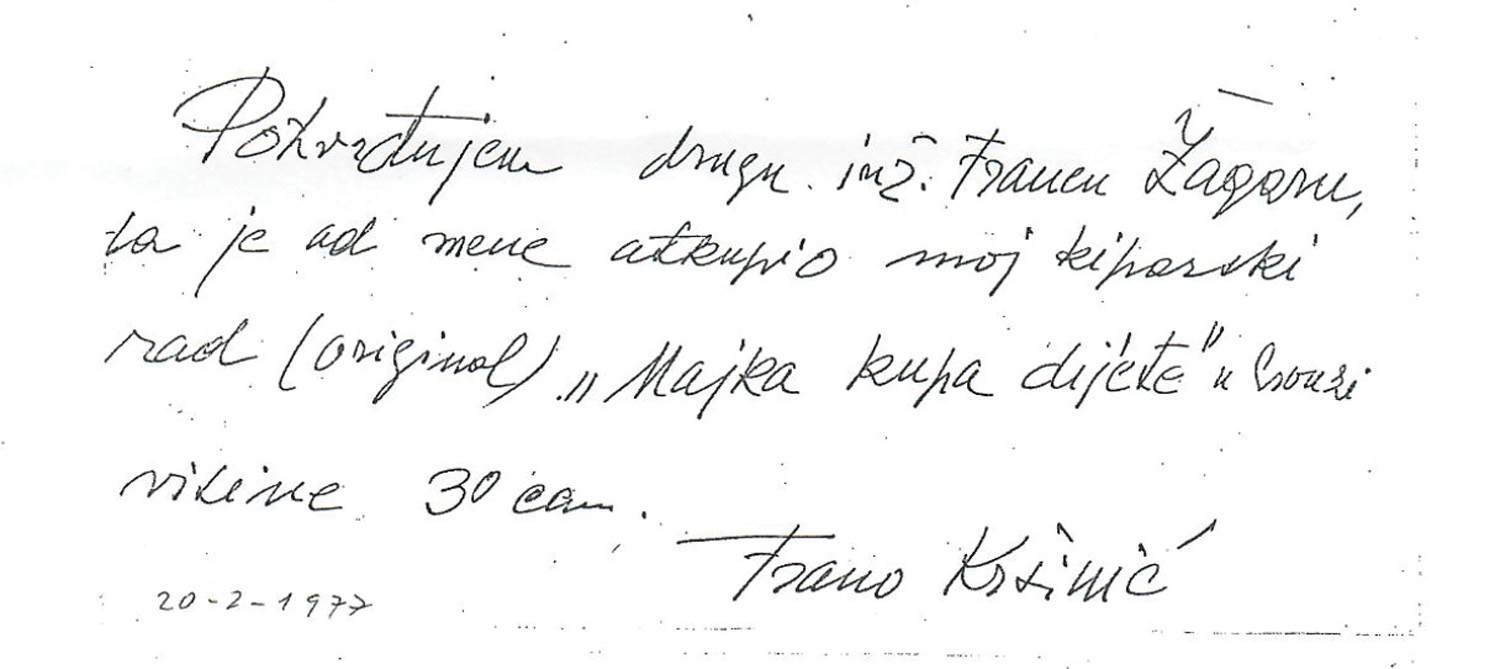 Potvrđujem drugu inž. Francu Žagaru,
da je od mene otkupio moj kiparski
rad (original) „Majka kupa dijete" u bronzi
visine 30 cm.
Frano Kršinić
20-2-1977